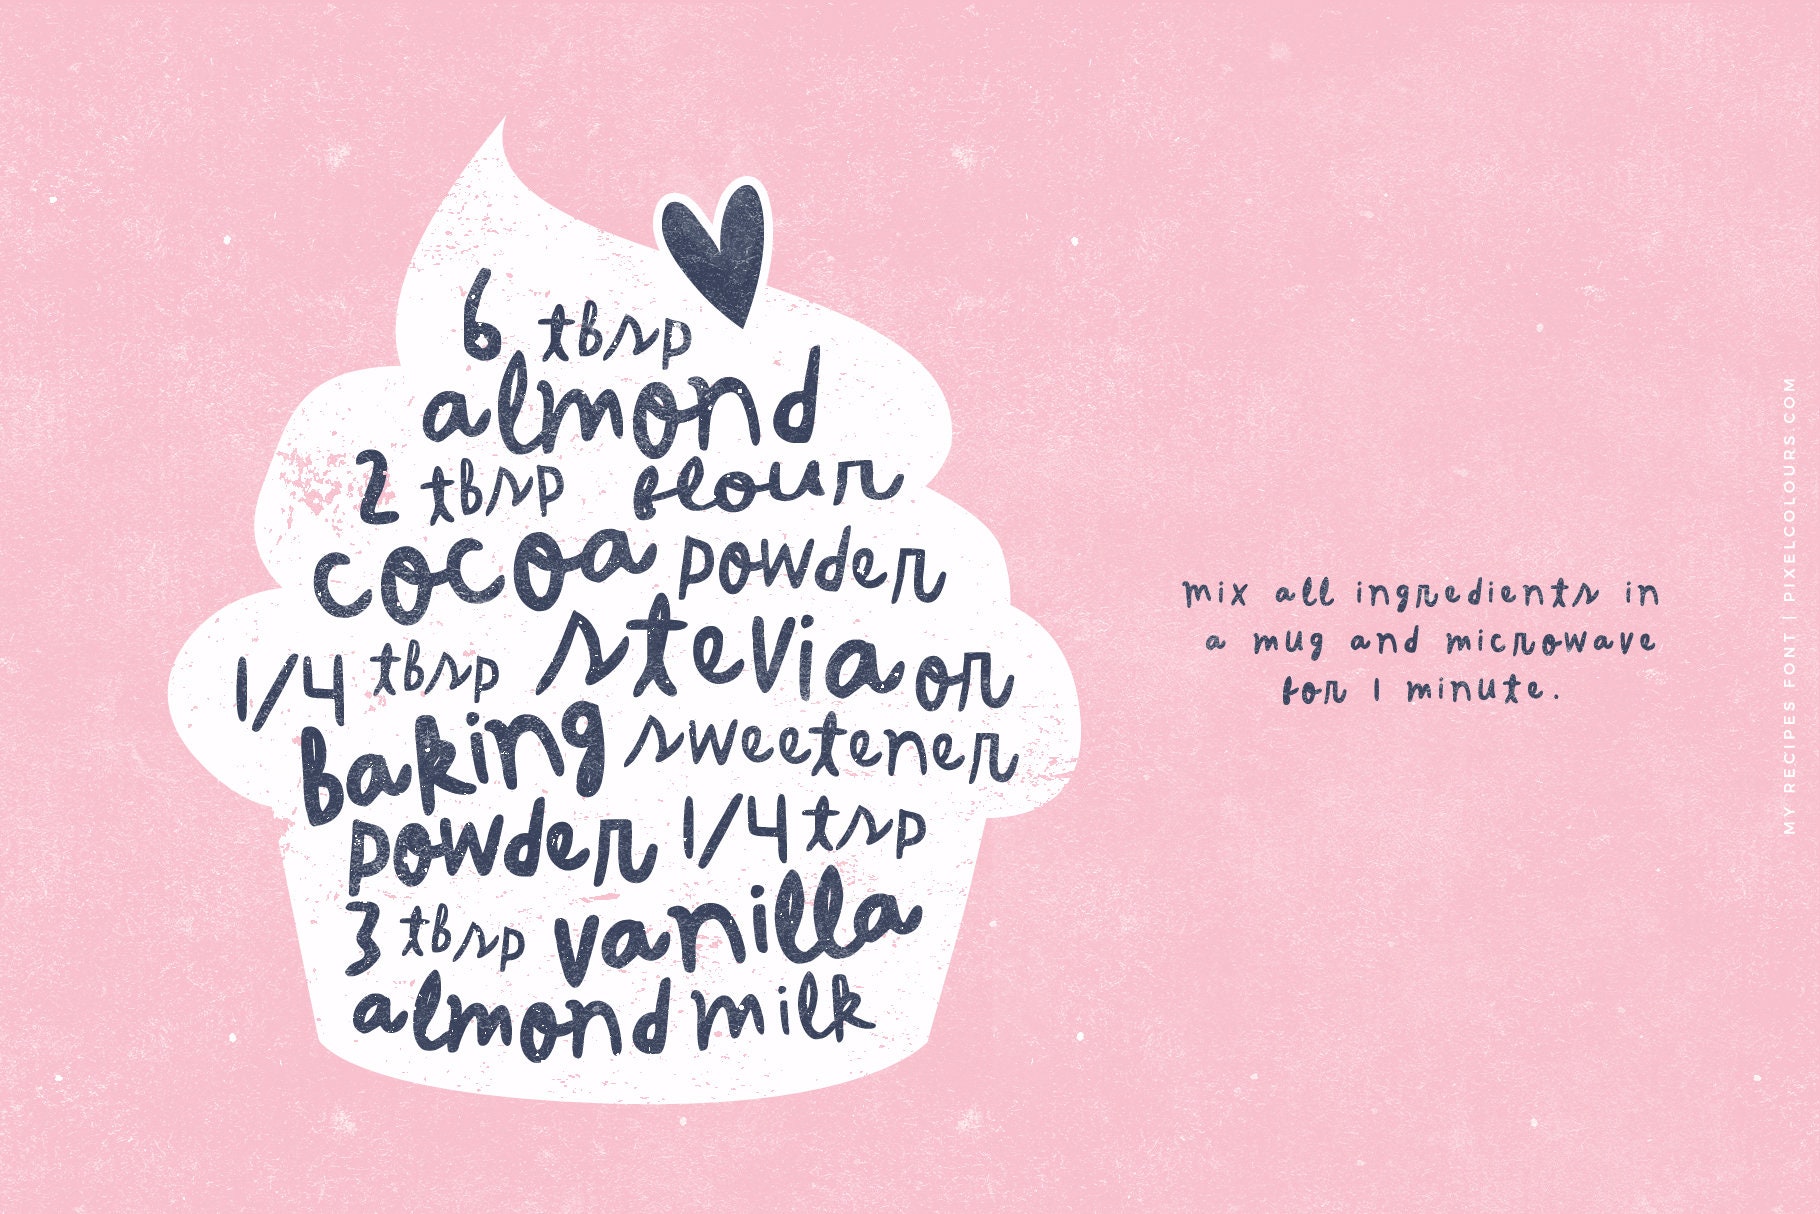 6 tbsp
almond
2 tbsp flour
cocoa powder
1/4 tbsp stevia or
baking sweetener
powder 1/4 tsp
3 tbsp vanilla
almond milk
mix all ingredients in
a mug and microwave
for 1 minute.
MY RECIPES FONT | PIXELCOLOURS.COM